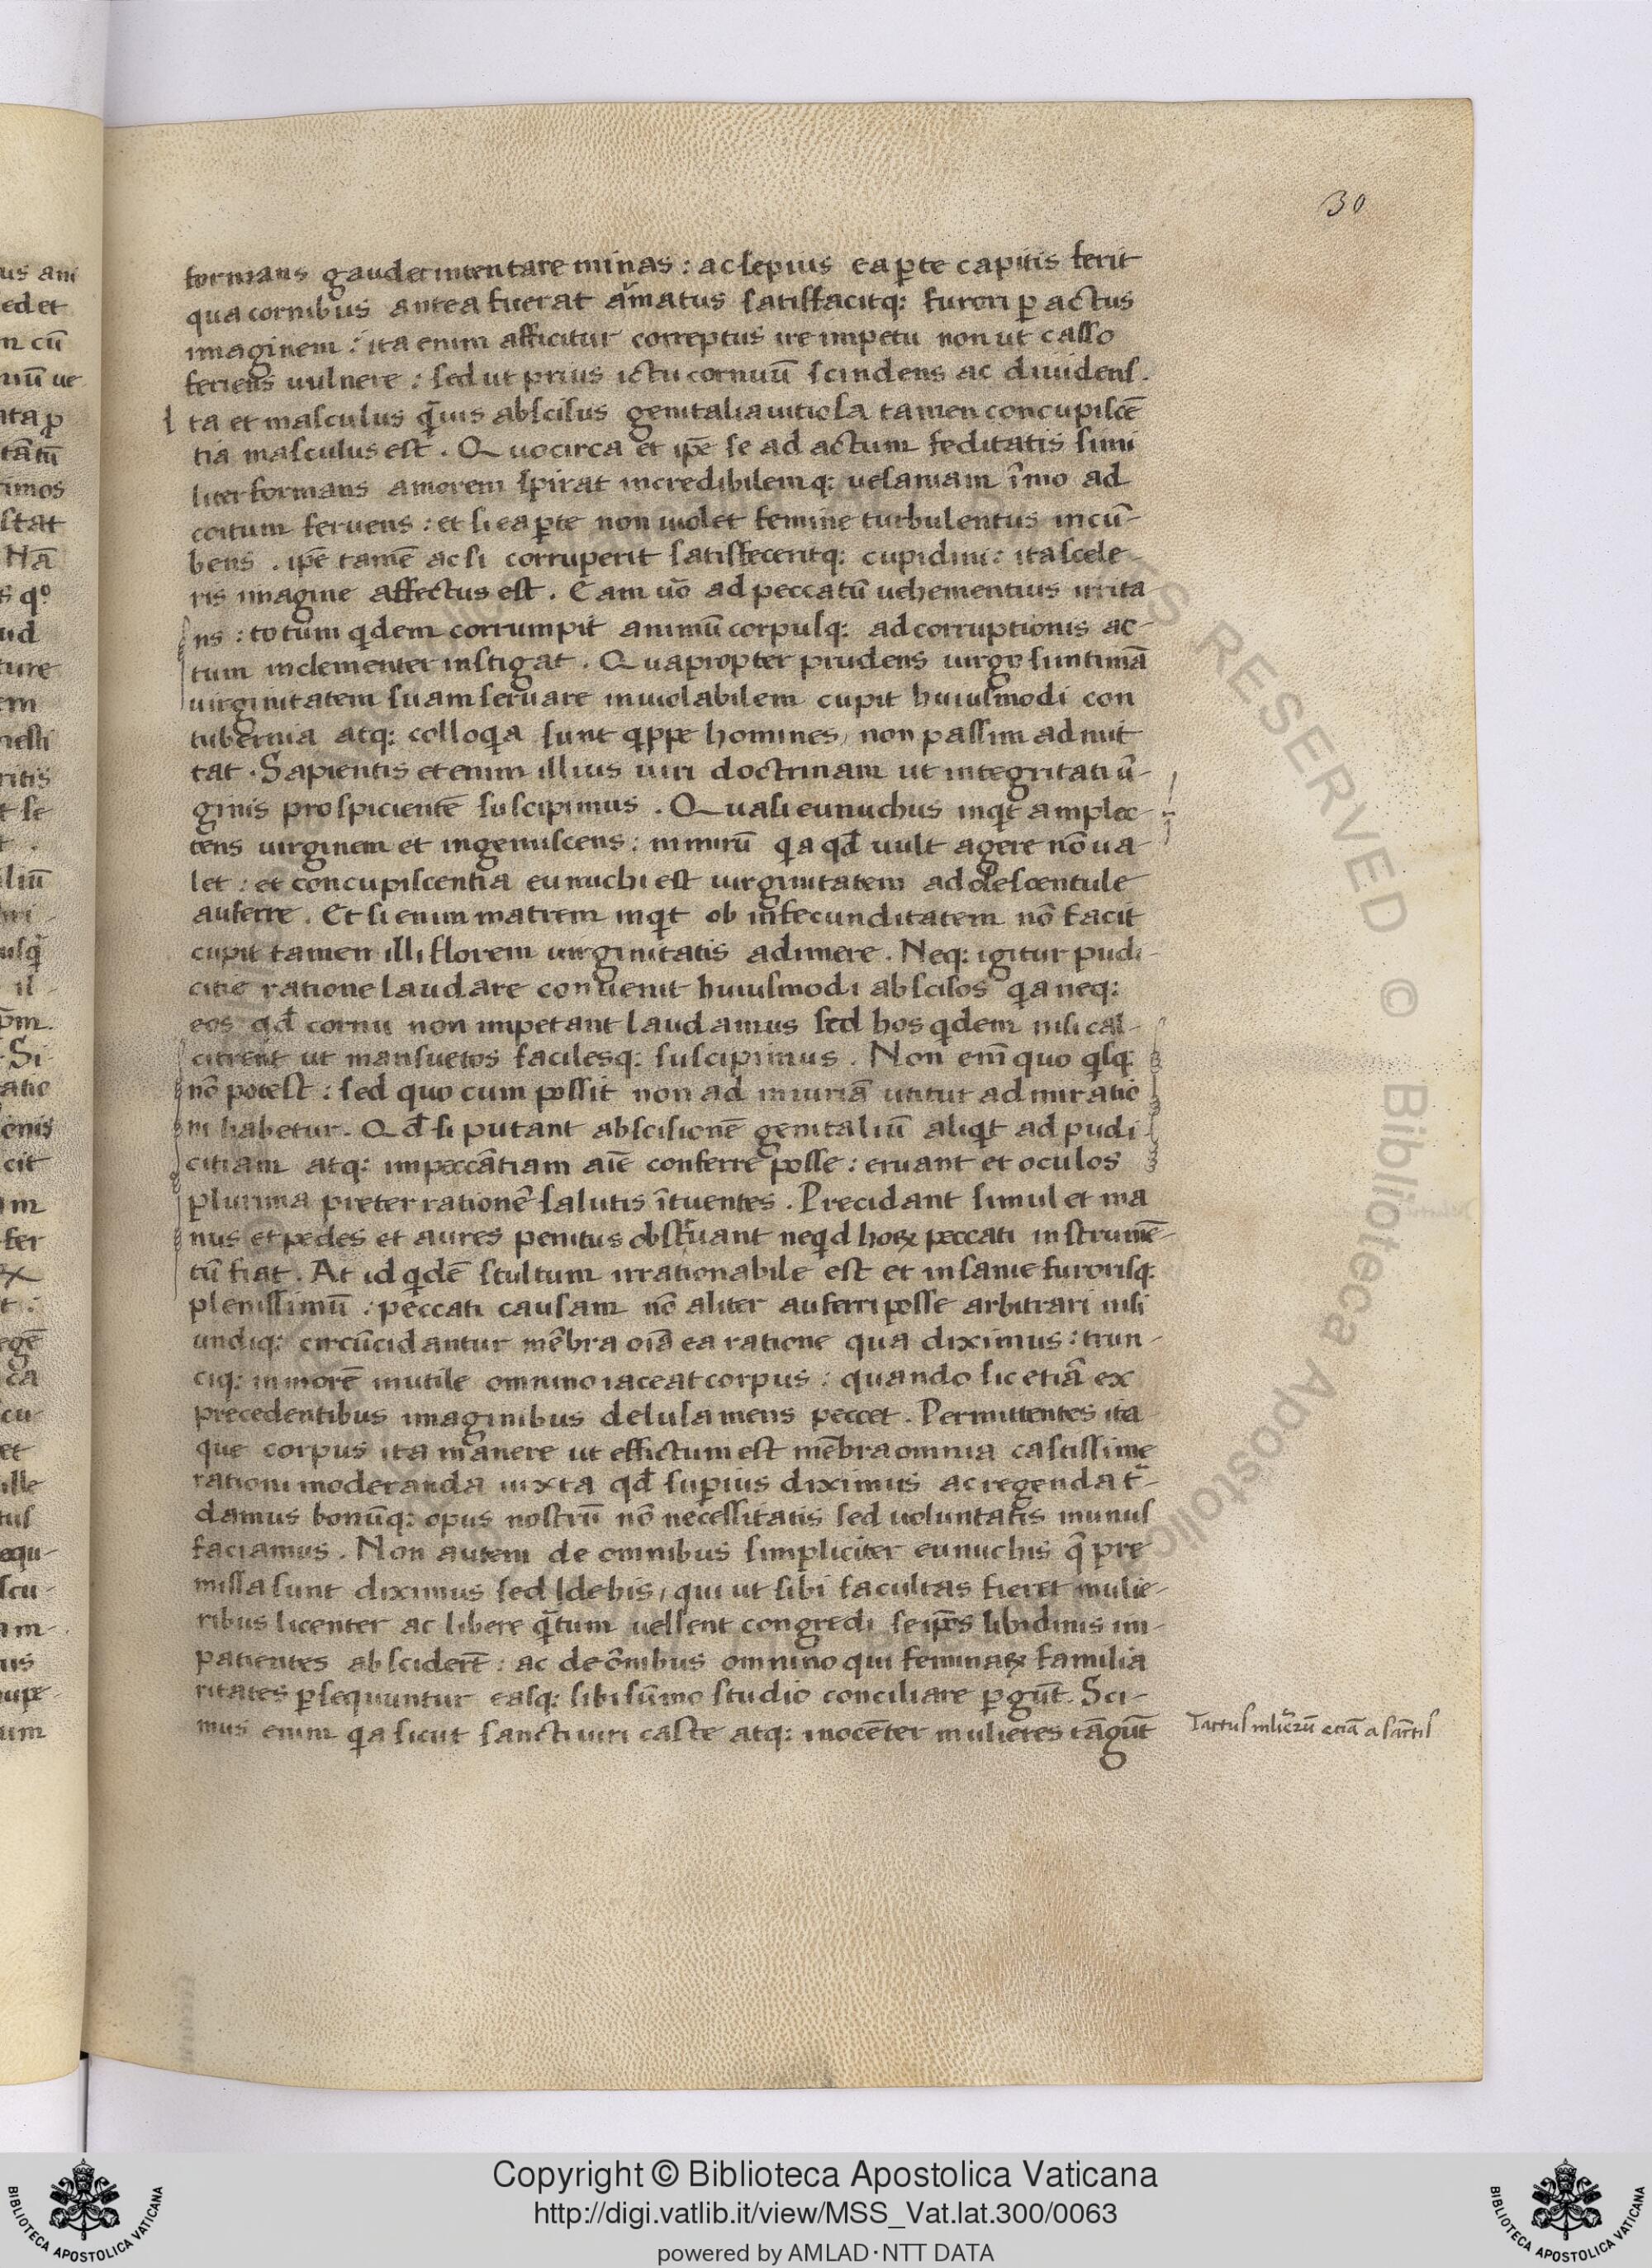 30
formans gaudet intentare minas : ac sepius ea ꝑte capitis ferit
qua cornibus antea fuerat armatus satisfacitq; furori ꝑ actus
imaginem : ita enim afficitur correptus ire impetu non ut casso
feriens uulnere : sed ut prius ictu cornuū scindens ac diuidens .
Ita et masculus quis abscisus genitalia uitiosa tamen concupiscē
tia masculus est . Quocirca et ipē se ad actum feditatis simi
liter formans amorem spirat incredibilemq; uesaniam īmo ad
coitum feruens : et si ea ꝑte non uiolet femine turbulentus incū-
bens . ipē tamē ac si corruperit satisfeceritq; cupidini : ita scele-
ris imagine affectus est . Eam uo ad peccatū uehementius irrita
ns : totum qdem corrumpit animū corpusq; ad corruptionis ac-
tum inclementer instigat . Quapropter prudens uirgo
uirginitatem suam seruare inuiolabilem cupit huiusmodi con
tubernia atq; colloqa sunt qppe homines, non passim admit
tat . Sapientis etenim illius uiri doctrinam ut integritati ū-
ginis prospicientē suscipimus . Quasi eunuchus inqt amplec-
tens uirginem et ingemiscens : nimirū qa qd uult agere nō ua-
let : et concupiscentia eunuchi est uirginitatem addolescentule
auferre . Et si enim matrem inqt ob infecunditatem nō facit
cupit tamen illi florem uirginitatis adimere . Neq; igitur pudi-
citie ratione laudare conuenit huiusmodi abscisos qa neq;
eos qd cornu non impetant laudamus sed hos qdem nisi cal-
citrent ut mansuetos facilesq; suscipimus . Non enī quo qsq;
nō potest : sed quo cum possit non ad iniuriā utitur admiratio
ni habetur . Qd si putant abscisionē genitaliū aliqt ad pudi-
citiam atq; impeccātiam aīe conferre posse : eruant et oculos
plurima preter rationē salutis ītuentes . Precidant simul et ma
nus et pedes et aures penitus obstruant neqd hoꝝ peccati instrumē-
tū fiat . At id qdē stultum irrationabile est et insanie furorisq;
plenissimū : peccati causam nō aliter auferri posse arbitrari nisi
undiq; circūcidantur mēbra oīa ea ratione qua diximus : trun-
ciq; in morē inutile omnino iaceat corpus : quando sic etiā ex
precedentibus imaginibus delusa mens peccet . Permittentes ita
que corpus ita manere ut effictum est mēbra omnia castissime
rationi moderanda iuxta qd supius diximus ac regenda t-
damus bonūq; opus nostrū nō necessitatis sed uoluntatis munus
faciamus . Non autem de omnibus simpliciter eunuchis q pre
missa sunt diximus sed de his, qui ut sibi facultas fieret mulie-
ribus licenter ac libere qtum uellent congredi se ipos libidinis im-
patientes absciderēt : ac de ōnibus omnino qui feminaꝝ familia
ritates ꝑsequuntur easq; sibi sūmo studio conciliare ꝑgūt . Sci-
mus enim qa sicut sancti uiri caste atq; inocēter mulieres tāgūt
Tactus mlierū etiā a sāctis
Copyright © Biblioteca Apostolica Vaticana
http://digi.vatlib.it/view/MSS_Vat.lat.300/0063
powered by AMLAD·NTT DATA
BIBLIOTECA APOSTOLICA VATICANA
BIBLIOTECA APOSTOLICA VATICANA